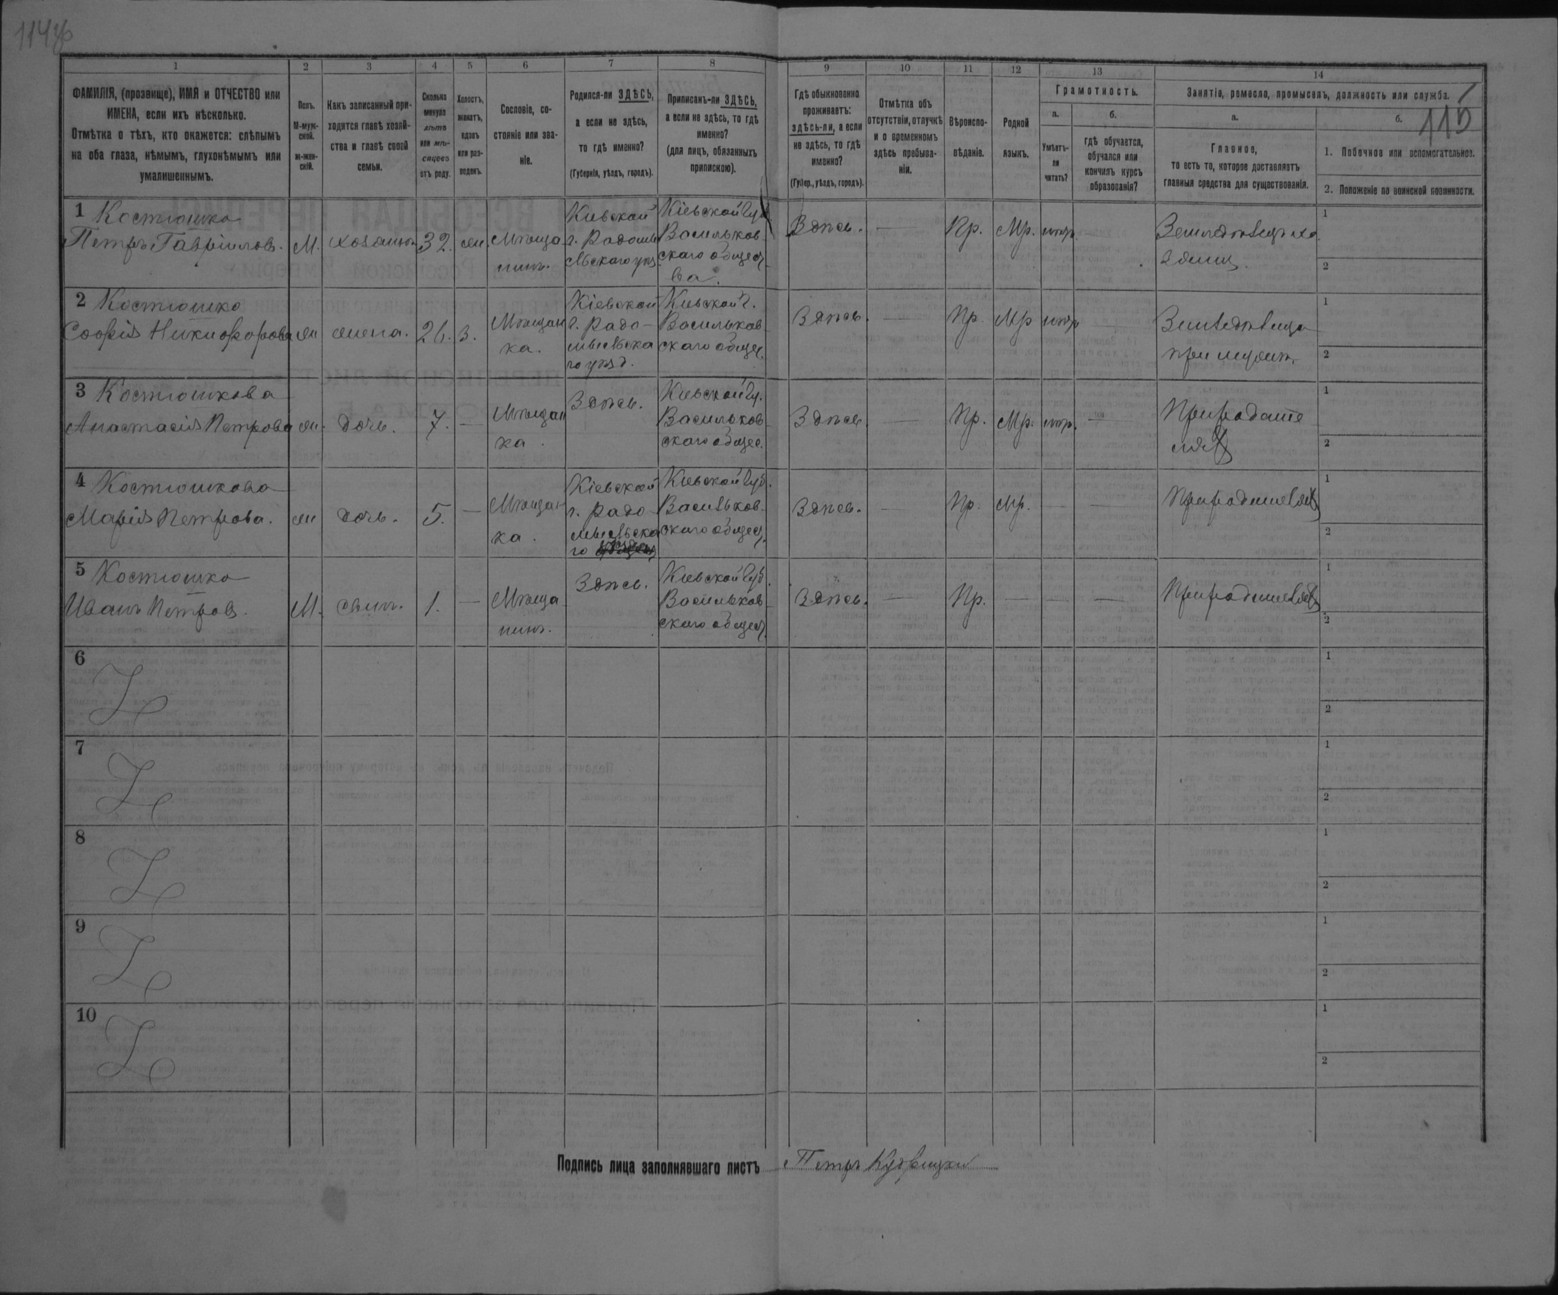 114об
115
1 2 3 4 5 6 7 8 9 10 11 12 13 14
ФАМИЛІЯ, (прозвище), ИМЯ и ОТЧЕСТВО или
ИМЕНА, если ихъ нѣсколько.
Отмѣтка о тѣхъ, кто окажется: слѣпымъ
на оба глаза, нѣмымъ, глухонѣмымъ или
умалишеннымъ.
Полъ.
М-муж-
ской.
ж-жен-
скій.
Какъ записанный при-
ходится главѣ хозяй-
ства и главѣ своей
семьи.
Сколько
минуло
лѣтъ
или мѣ-
сяцевъ
отъ роду.
Холостъ,
женатъ,
вдовъ
или раз-
веденъ.
Сословіе, со-
стояніе или зва-
ніе.
Родился-ли ЗДѢСЬ,
а если не здѣсь,
то гдѣ именно?
(Губернія, уѣздъ, городъ).
Приписанъ-ли ЗДѢСЬ,
а если не здѣсь, то гдѣ
именно?
(для лицъ, обязанныхъ
припискою).
Гдѣ обыкновенно
проживаетъ:
здѣсь-ли, а если
не здѣсь, то гдѣ
именно?
(Губер., уѣздъ, городъ).
Отмѣтка объ
отсутствіи, отлучкѣ
и о временномъ
здѣсь пребыва-
ніи.
Вѣроиспо-
вѣданіе.
Родной
языкъ.
Грамотность.
а.
Умѣетъ-
ли
читать?
б.
гдѣ обучается,
обучался или
кончилъ курсъ
образованія?
Занятія, ремесло, промыселъ, должность или служба.
а.
Главное,
то есть то, которое доставляетъ
главныя средства для существованія.
б.
1. Побочное или вспомогательное.
2. Положеніе по воинской повинности.
1 Костюшко
Петръ Гавріиловъ. М. хозяинъ 32. ж
Мѣща
нинъ.
Кіевской
г. Радомы
сльскаго уѣз.
Кіевской Губ.
Васильков
скаго общес
ва.
Здѣсь. — Пр. Мр. нѣтъ
1
2
2 Костюшко
Софія Никифорова ж жена. 26. з.
Мѣщан
ка.
Кіевской
г. Радо-
мысльска
го уѣзд.
Кіевской г.
Васильков
скаго общес.
Здѣсь. — Пр Мр нѣтъ —
при мужѣ.
1
2
3 Костюшкова
Анастасія Петрова ж. дочь. 7. —
Мѣщан
ка.
Здѣсь.
Кіевской Гу.
Васильков
скаго общес.
Здѣсь — Пр. Мр. нѣтъ. —
При родите
ляхъ
1
2
4 Костюшкова
Марія Петрова. ж дочь. 5. —
Мѣщан
ка.
Кіевской
г. Радо
мысльска
го
Кіевской Губ.
Васильков.
скаго общес.
Здѣсь. — Пр. Мр. — —
При родителяхъ
1
2
5 Костюшко
Иванъ Петровъ. М. сынъ. 1. —
Мѣща
нинъ.
Здѣсь.
Кіевской Губ.
Васильков
скаго общес.
Здѣсь. — Пр. — — —
При родителяхъ
1
2
6
1
2
7
1
2
8
1
2
9
1
2
10
1
2
Подпись лица заполнявшаго листъ Петръ